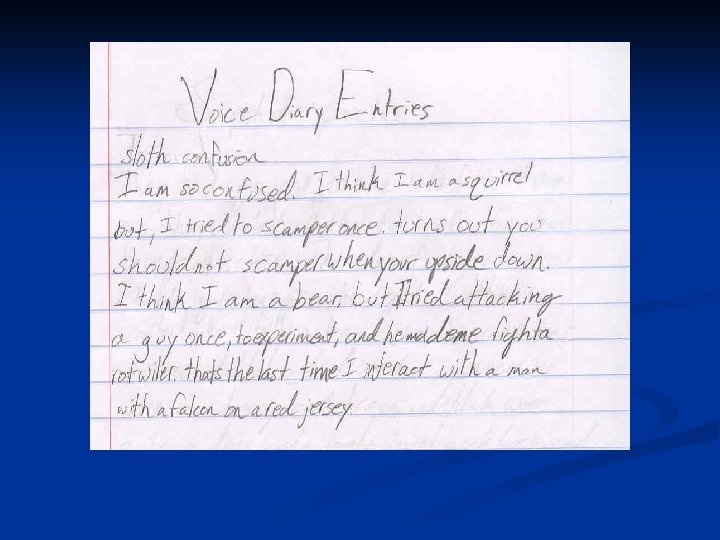 Voice Diary Entries
sloth confusion
I am so confused. I think I am a squirrel
but, I tried to scamper once. turns out you
should not scamper when your upside down.
I think I am a bear, but I tried attacking
a guy once, to experiment, and he made me fight a
rotwiler. thats the last time I interact with a man
with a falcon on a red jersey